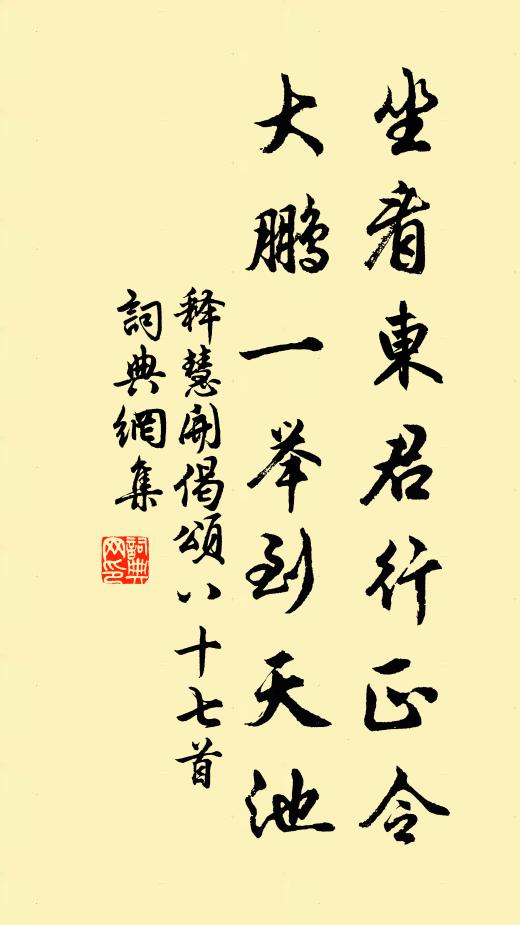 坐看東君行正令
大鹏一举到天池
释慧開偈頌八十七首
詞典網集
詞典
网印